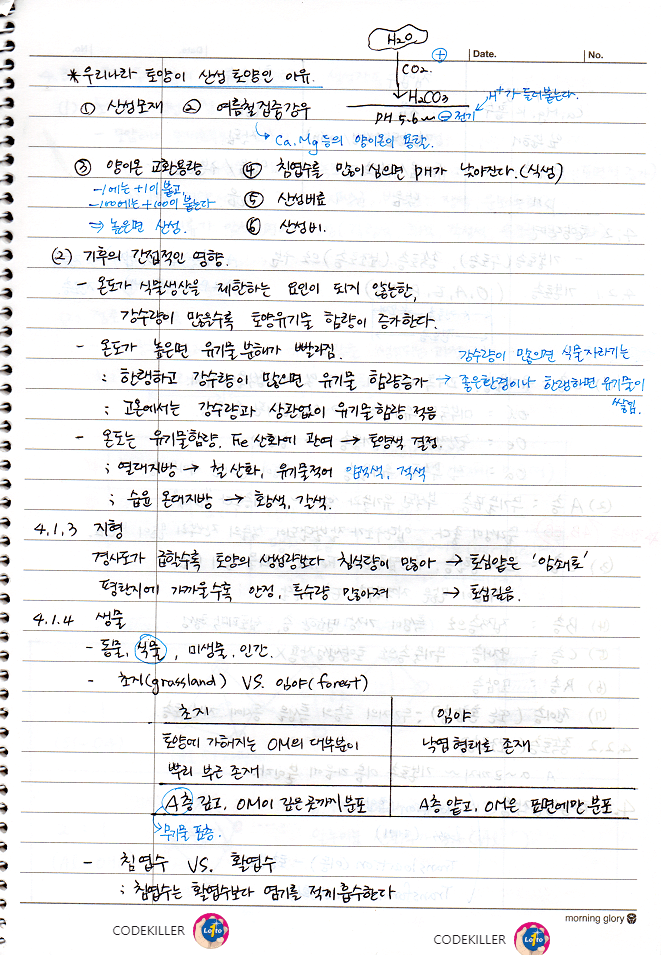 H2O
⊕
Date.
No.
CO2.
*우리나라 토양이 산성토양인 이유.
H2CO3
H+가 들러붙는다.
① 산성모재 ② 여름철집중강우
PH 5.6
⊖전기
↳ Ca, Mg 등의 양이온이 용탈.
③ 양이온 교환용량 ④ 침엽수를 많이 심으면 pH가 낮아진다.(식생)
-1에는 +1이 붙고,
-100에는 +100이 붙는다
⑤ 산성비료
⇒ 높으면 산성.
⑥ 산성비.
(2) 기후의 간접적인 영향.
- 온도가 식물생산을 제한하는 요인이 되지 않는한,
강수량이 많을수록 토양유기물 함량이 증가한다.
- 온도가 높으면 유기물 분해가 빨라짐.
강수량이 많으면 식물자라기는
; 한랭하고 강수량이 많으면 유기물 함량증가 → 좋은환경이나 한랭하면 유기물이
쌓임.
; 고온에서는 강수량과 상관없이 유기물함량 적음
- 온도는 유기물함량, Fe 산화에 관여 → 토양색 결정.
; 열대지방 → 철 산화, 유기물적어 암적색, 적색
; 습윤 온대지방 → 회색, 갈색.
4.1.3 지형
경사도가 급할수록 토양의 생성량보다 침식량이 많아 → 토심얕은 '암쇄토'
평탄지에 가까울수록 안정, 투수량 많아져 → 토심깊음.
4.1.4 생물
- 동물, 식물, 미생물. 인간.
- 초지(grassland) VS. 임야(forest)
초지 임야
토양에 가해지는 OM의 대부분이 낙엽형태로 존재
뿌리 부근 존재
A층 깊고, OM이 깊은곳까지 분포 A층 얕고, OM은 표면에만 분포
→ 무기물 표층.
- 침엽수 VS. 활엽수
; 침엽수는 활엽수보다 염기를 적게흡수한다
morning glory
CODEKILLER
Lotto
CODEKILLER
Lotto